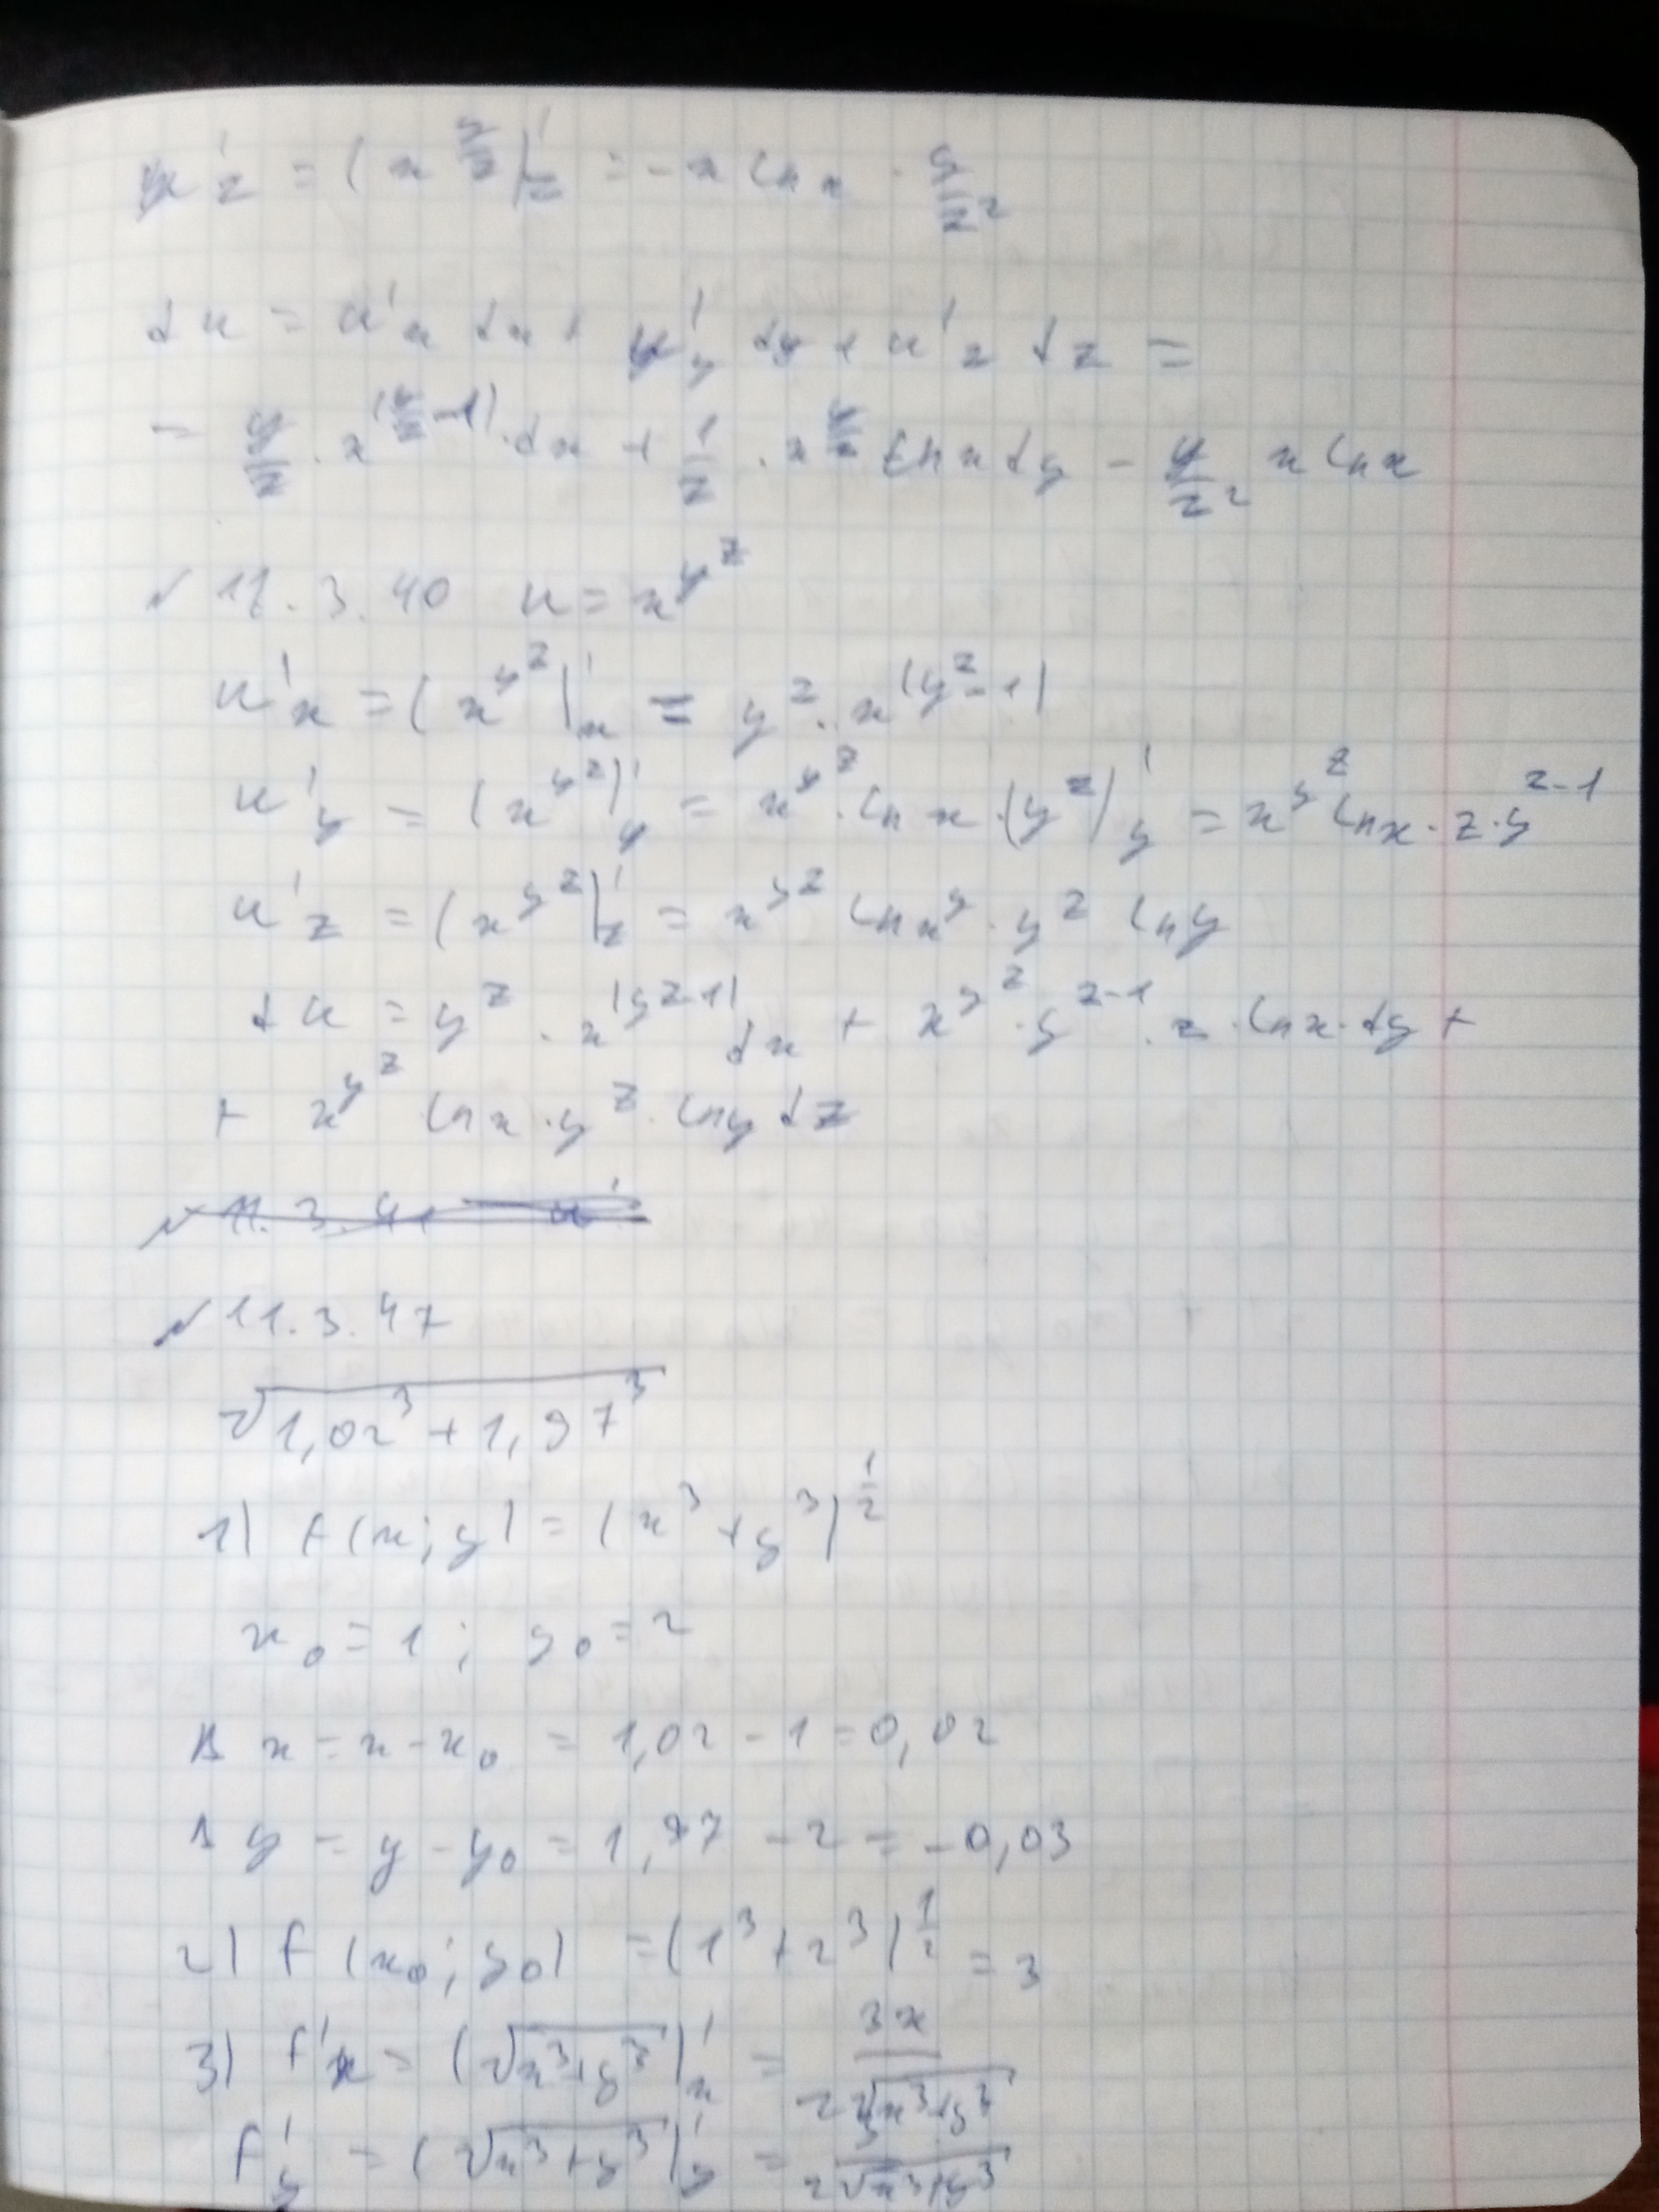 u'z = (x^(y/z))'z = -x ln x · y/z²
du = u'x dx + u'y dy + u'z dz =
= y/z · x^(y/z - 1) · dx + 1/z · x^(y/z) ln x dy - y/z² x ln x
№ 11.3.40 u = x^y^z
u'x = (x^y^z)'x = y^z · x^(y^z - 1)
u'y = (x^y^z)'y = x^y^z · ln x · (y^z)'y = x^y^z ln x · z · y^(z-1)
u'z = (x^y^z)'z = x^y^z ln x^y · y^z ln y
du = y^z · x^(y^z - 1) dx + x^y^z · y^(z-1) · z · ln x · dy +
+ x^y^z ln x · y^z · ln y dz
№ 11.3.41 u'
№ 11.3.47
√(1,02³ + 1,97³)
1) f(x; y) = (x³ + y³)^(1/2)
x₀ = 1; y₀ = 2
Δx = x - x₀ = 1,02 - 1 = 0,02
Δy = y - y₀ = 1,97 - 2 = -0,03
2) f(x₀; y₀) = (1³ + 2³)^(1/2) = 3
3) f'x = (√(x³+y³))'x = 3x / 2√(x³+y³)
f'y = (√(x³+y³))'y = / 2√(x³+y³)